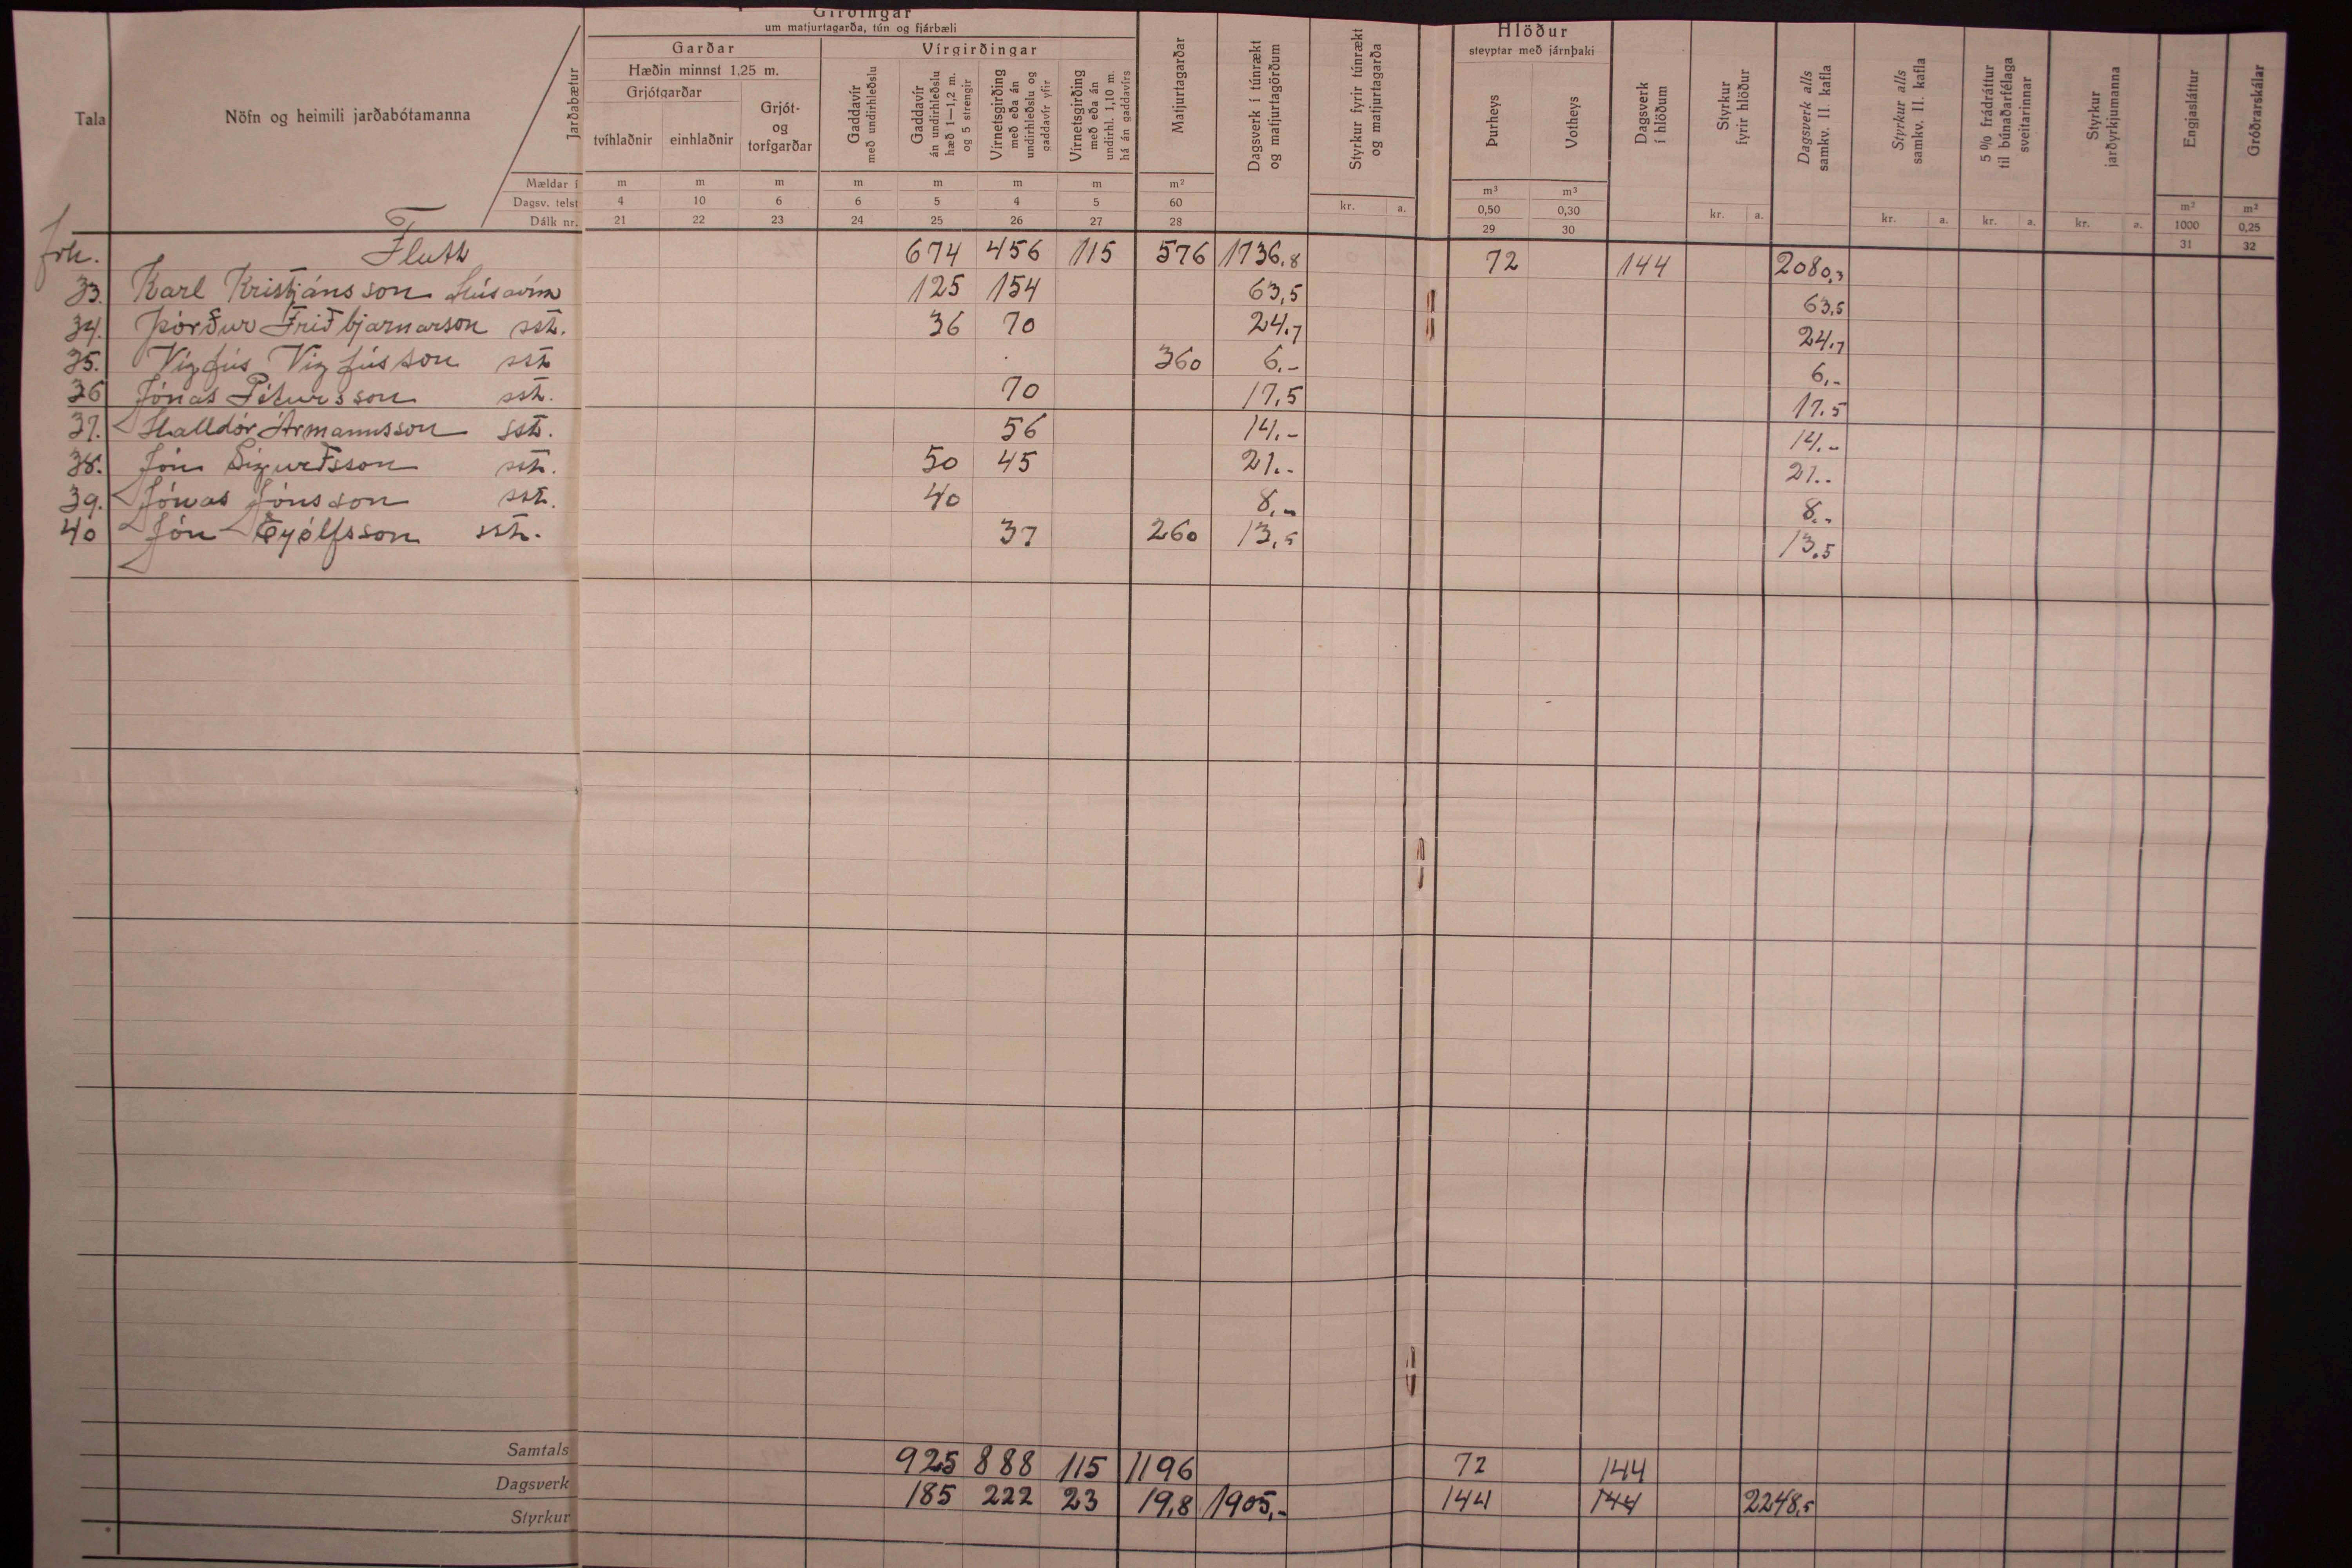 Girðingar
um matjurtagarða, tún og fjárbæli
Garðar
Vírgirðingar
Hæðin minnst 1,25 m.
Grjótgarðar
tvíhlaðnir
einhlaðnir
Grjót-
og
torfgarðar
Gaddavír
með undirhleðslu
Gaddavír
án undirhleðslu
hæð 1—1,2 m.
og 5 strengir
Vírnetsgirðing
með eða án
undirhleðslu og
gaddavír yfir
Vírnetsgirðing
með eða án
undirhl. 1,10 m.
há án gaddavírs
Matjurtagarðar
Dagsverk í túnrækt
og matjurtagörðum
Styrkur fyrir túnrækt
og matjurtagarða
Hlöður
steyptar með járnþaki
Þurheys
Votheys
Dagsverk
í hlöðum
Styrkur
fyrir hlöður
Dagsverk alls
samkv. II. kafla
Styrkur alls
samkv. II. kafla
5 % frádráttur
til búnaðarfélaga
sveitarinnar
Styrkur
jarðyrkjumanna
Engjasléttur
Gróðrarskálar
Tala
Nöfn og heimili jarðabótamanna
Jarðabætur
Mældar í m m m m m m m m² kr. a. m³ m³ kr. a. kr. a. kr. a. kr. a. m² m²
Dagsv. telst 4 10 6 6 5 4 5 60 0,50 0,30 1000 0,25
Dálk nr. 21 22 23 24 25 26 27 28 29 30 31 32
frh. Flutt 674 456 115 576 1736.8 72 144 2080,3
33. Karl Kristjánsson Húsavík 125 154 63,5 63,5
34. Þórður Friðbjarnarson sst. 36 70 24.7 24.7
35. Vigfús Vigfússon sst 360 6.- 6.-
36 Jónas Pétursson sst. 70 17.5 17.5
37. Halldór Ármannsson sst. 56 14.- 14.-
38. Jón Sigurðsson sst. 50 45 21.- 21.-
39. Jónas Jónsson sst. 40 8.- 8.-
40 Jón Eyjólfsson sst. 37 260 13.5 13.5
Samtals 925 888 115 1196 72 144
Dagsverk 185 222 23 19,8 1905,- 144 144 2248,5
Styrkur